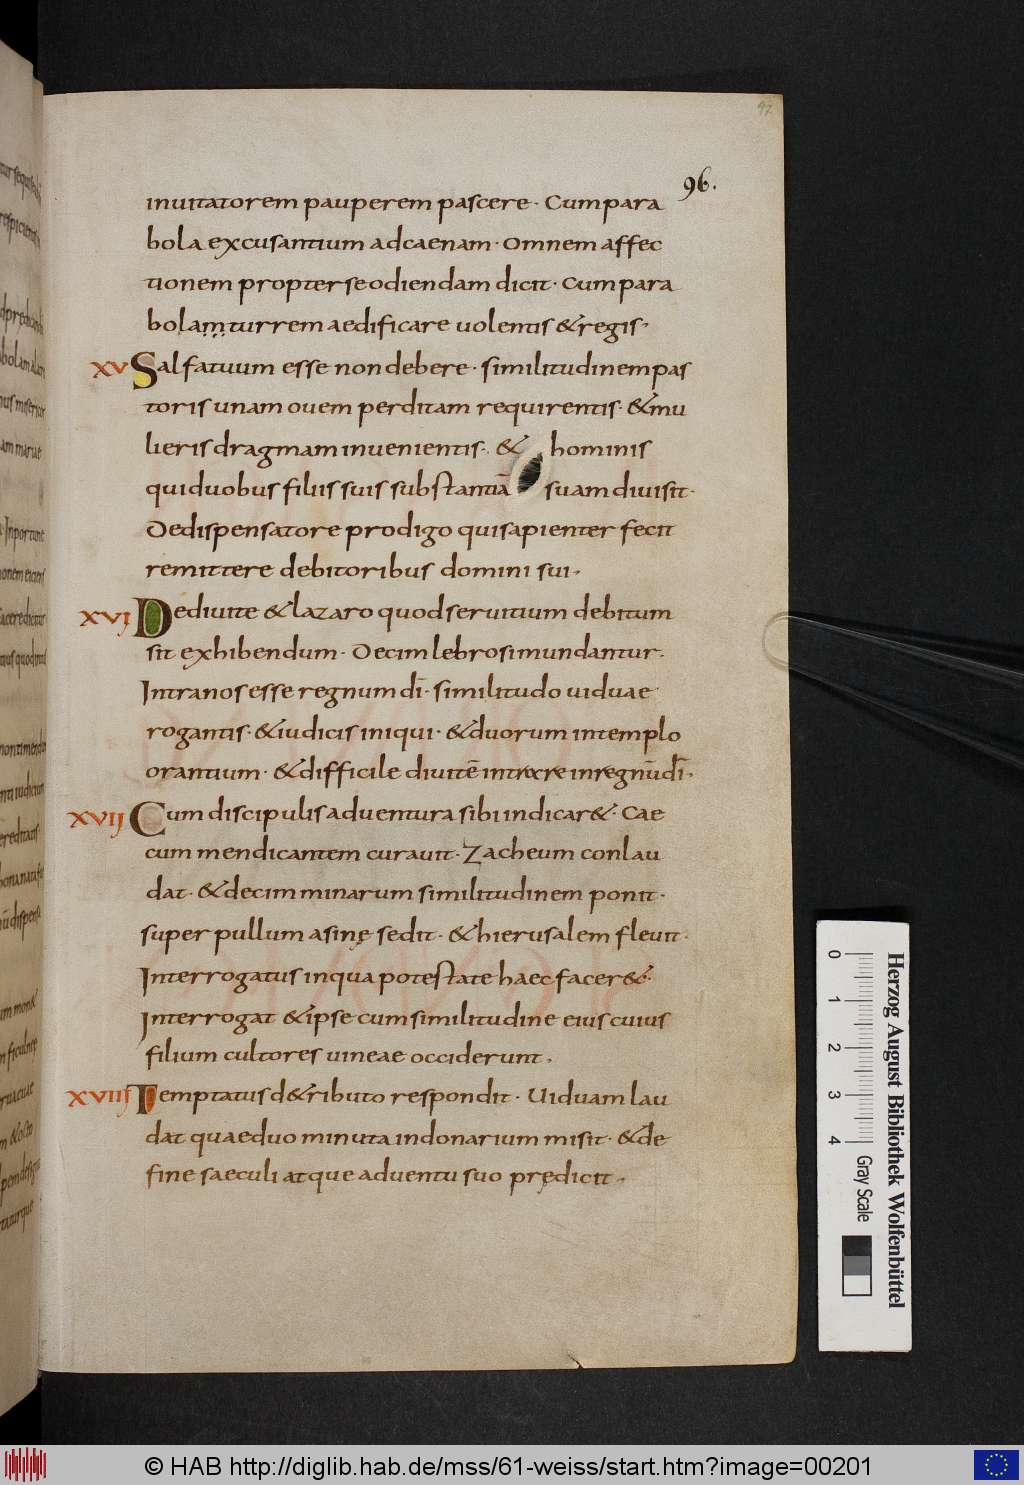 97
96.
inuitatorem pauperem pascere · Cum para
bola excusantium ad caenam · Omnem affec
tionem propter se odiendam dicit · Cum para
bolam turrem aedificare uolentis & regis ·
XV Sal fatuum esse non debere · similitudinem pas
toris unam ouem perditam requirentis · & mu
lieris dragmam inuenientis · & hominis
qui duobus filiis suis substantiā suam diuisit ·
De dispensatore prodigo qui sapienter fecit
remittere debitoribus domini sui ·
XVI De diuite & lazaro quod seruitium debitum
sit exhibendum · Decim lebrosi mundantur ·
Intra nos esse regnum dī · similitudo uiduae
rogantis · & iudicis iniqui · & duorum in templo
orantium · & difficile diuitē intrare in regnū dī ·
XVII Cum discipulis aduentura sibi indicar& · Cae
cum mendicantem curauit · Zacheum conlau
dat · & decim minarum similitudinem ponit ·
super pullum asinę sedit · & hierusalem fleuit ·
Interrogatus in qua potestate haec facer& ·
Interrogat & ipse cum similitudine eius cuius
filium cultores uineae occiderunt ·
XVIII Temptatus d& ributo respondit · Uiduam lau
dat quae duo minuta in donarium misit · & de
fine saeculi atque aduentu suo prędicit ·
0 1 2 3 4
Gray Scale
Herzog August Bibliothek Wolfenbüttel
© HAB http://diglib.hab.de/mss/61-weiss/start.htm?image=00201